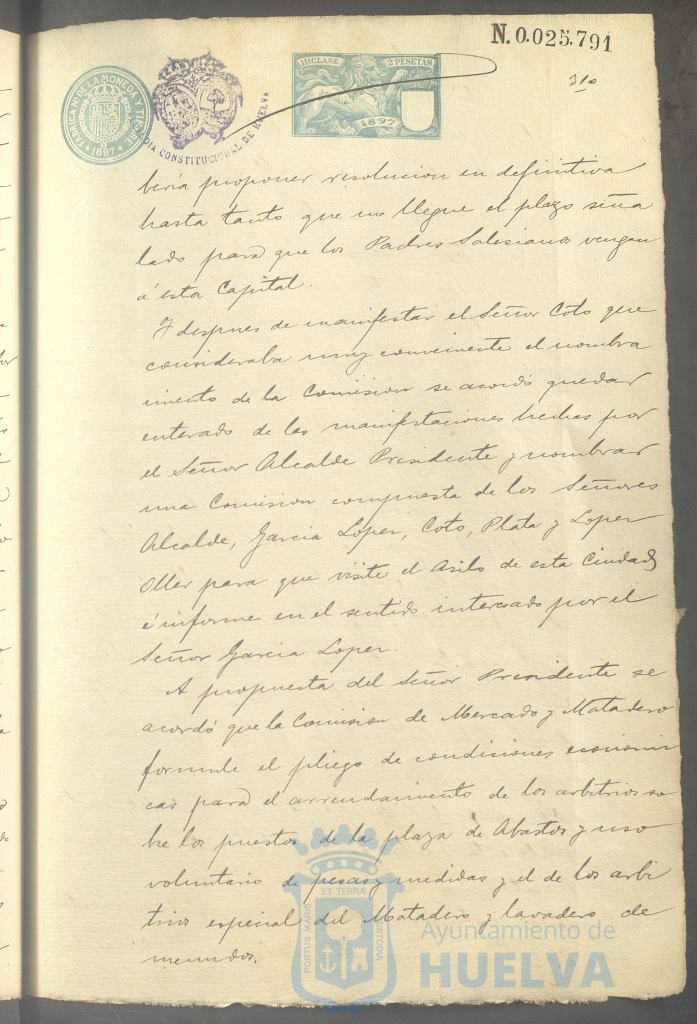 N. 0.025.791
31o
FABRICA N. DE LA MONEDA Y TIMBRE
1897
DIA CONSTITUCIONAL DE HUELVA
11ª CLASE 2 PESETAS
1897
beria proponer resolucion en definitiva
hasta tanto que no llegue el plazo seña
lado para que los Padres Salesianos vengan
á esta Capital.
Y despues de manifestar el Señor Coto que
consideraba muy conveniente el nombra
miento de la Comision se acordó quedar
enterado de las manifestaciones hechas por
el Señor Alcalde Presidente y nombrar
una Comision compuesta de los Señores
Alcalde, Garcia Lopez, Coto, Plata y Lopez
Oller para que visite el Asilo de esta Ciudad
é informe en el sentido interesado por el
Señor Garcia Lopez.
A propuesta del Señor Presidente se
acordó que la Comision de Mercado y Matadero
formule el pliego de condiciones economi
cas para el arrendamiento de los arbitrios so
bre los puestos de la plaza de Abastos y uso
voluntario de pesas y medidas y el de los arbi
trios especial del Matadero y lavadero de
menudos.
PORTUS MARIS ET TERRÆ CUSTODIA
Ayuntamiento de
HUELVA